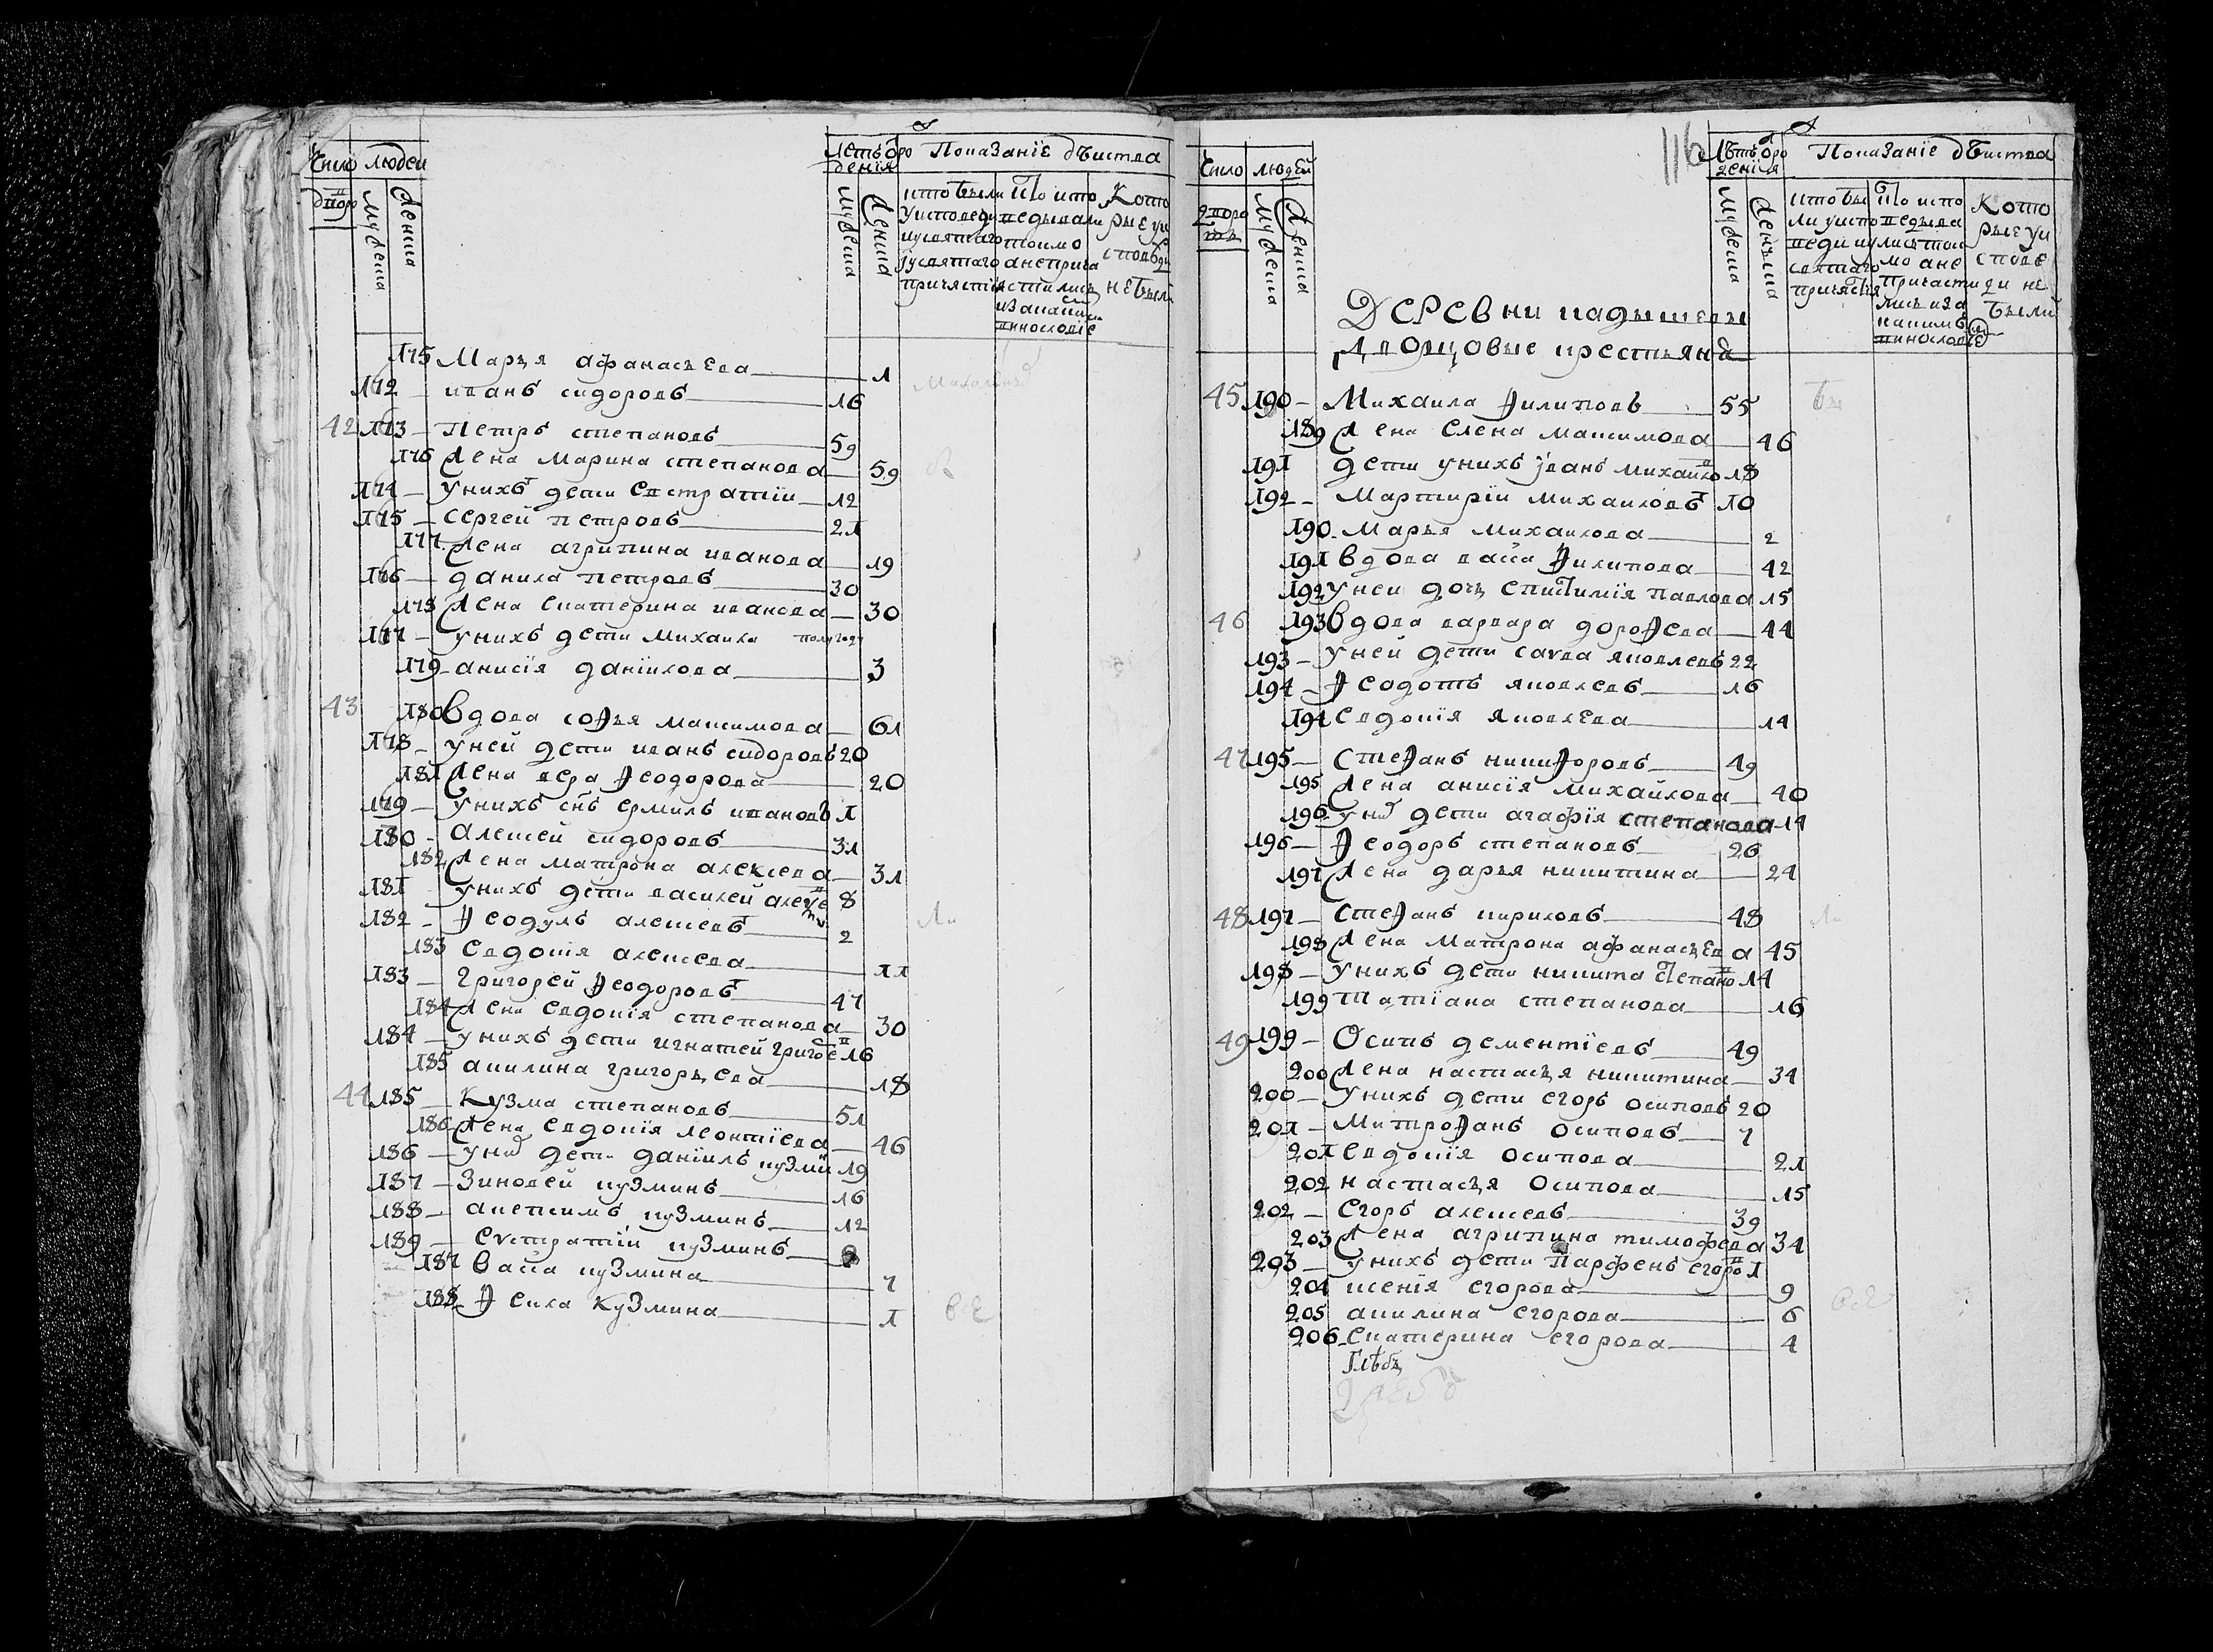 Число людей
Лѣтъ ѿ рождения
Показанїе дѣиства
дворо
мужеска
женска
мужеска
женска
кто были у исповеди и у святаго причястїя
кто исповедывали токмо а неприча стились и за каким винословїе
Которые у исповѣди не были
175 Марья афанасьева 1
172 иванъ сидоровъ 16
42 173 Петръ степановъ 59
176 Жена марина степанова 59
174 у нихъ дети евстратїи 12
175 сергей петровъ 21
177 Жена агрипина иванова 19
176 данила петровъ 30
178 Жена екатерина иванова 30
177 у нихъ дети михаила полугоду
179 анисїя данїилова 3
43 180 вдова софья максимова 61
178 у ней дети иванъ сидоровъ 20
181 Жена вера феодорова 20
179 у нихъ снъ ермилъ ивановъ 1
180 алексей сидоровъ 31
182 Жена матрона алексева 31
181 у нихъ дети василей алексе 8
182 феодулъ алексевъ 2
183 евдокїя алексева 11
183 григорей феодоровъ 47
184 Жена евдокїя степанова 30
184 у нихъ дети игнатей григоре 16
185 акилина григорьева 18
44 185 Кузма степановъ 51
186 Жена евдокїя леонтїева 46
186 у них дети данїилъ кузми 19
187 Зиновей кузминъ 16
188 анепсимъ кузминъ 12
189 Еѵстратїй кузминъ
187 васса кузмина 7
188 фекла Кузмина 1
Число людей
116
Лѣтъ ѿ рожденїя
Показанїе дѣиства
дворо
мужеска
женска
мужеска
женска
кто были у исповеди и у святаго причястїя
кто исповедывались токмо а не причастились и за каким винословїе
Которые у исповеди не были
Деревни кадышевы
дворцовые крестьяна
45 190 Михаила филиповъ 55
189 Жена елена максимова 46
191 дети у нихъ иванъ михайло 18
192 Мартирїи михаиловъ 10
190 марья михаилова 2
191 вдова васса филипова 42
192 у неи дочь епистимїя павлова 15
46 193 вдова варвара дорофева 44
193 у ней дети саѵва яковлевъ 22
194 феодотъ яковлевъ 16
194 евдокїя яковлева 14
47 195 стефанъ никифоровъ 49
195 Жена анисїя михайлова 40
196 у них дети агафїя степанова 14
196 феодоръ степановъ 26
197 Жена дарья никитина 24
48 197 стефанъ кириловъ 48
198 Жена матрона афанасьева 45
198 у нихъ дети никита степано 14
199 татїана степанова 16
49 199 Осипъ дементїевъ 49
200 Жена настасья никитина 34
200 у нихъ дети егоръ осиповъ 20
201 митрофанъ осиповъ 7
201 евдокїя осипова 21
202 настасья осипова 15
202 егоръ алексевъ 39
203 Жена агрипина тимофева 34
203 у нихъ дети парфенъ егоро 1
204 ксенїя егорова 9
205 акилина егорова 6
206 екатерина егорова 4
Глѣбъ